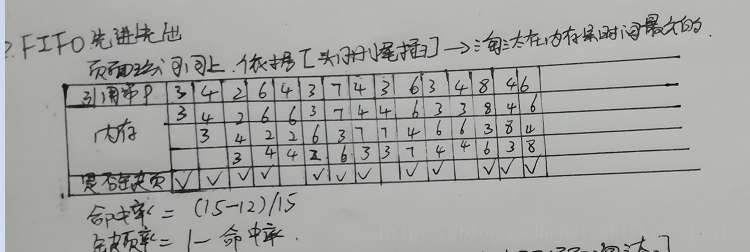 FIFO先进先出
依据[头删尾插]→淘汰在内存呆时间最久的.
引用串P 3 4 2 6 4 3 7 4 3 6 3 4 8 4 6
3 4 2 6 6 3 7 4 4 6 3 3 8 4 6
内存 3 4 2 2 6 3 7 7 4 6 6 3 8 4
3 4 4 2 6 3 3 7 4 4 6 3 8
是否缺页 ✓ ✓ ✓ ✓ ✓ ✓ ✓ ✓ ✓ ✓ ✓ ✓
命中率 = (15-12)/15
缺页率 = 1 - 命中率.